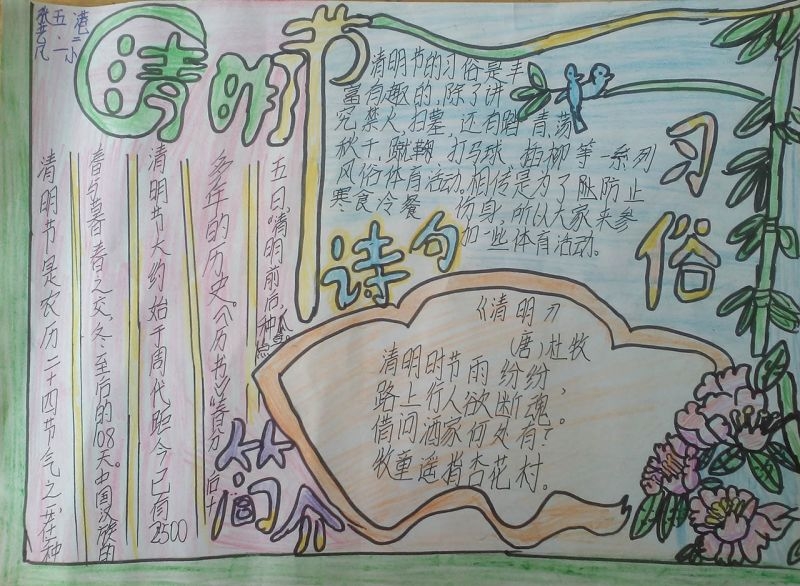 港二小
五.一
清明节
清明节的习俗是丰
富有趣的,除了讲
究禁火,扫墓,还有踏青,荡
秋千,蹴鞠,打马球,插柳等一系列
风俗体育活动.相信是为了防止
寒食冷餐 伤身,所以大家来参
加一些体育活动。
习俗
诗句
《清明》
(唐)杜牧
清明时节雨纷纷,
路上行人欲断魂。
借问酒家何处有?
牧童遥指杏花村。
清明节是农历二十四节气之一,在种
春与暮春之交,冬至后的108天。中国汉族的
清明节大约始于周代距今已有2500
多年的历史。《历书》:"春分后十
五日,"清明前后,种
简介